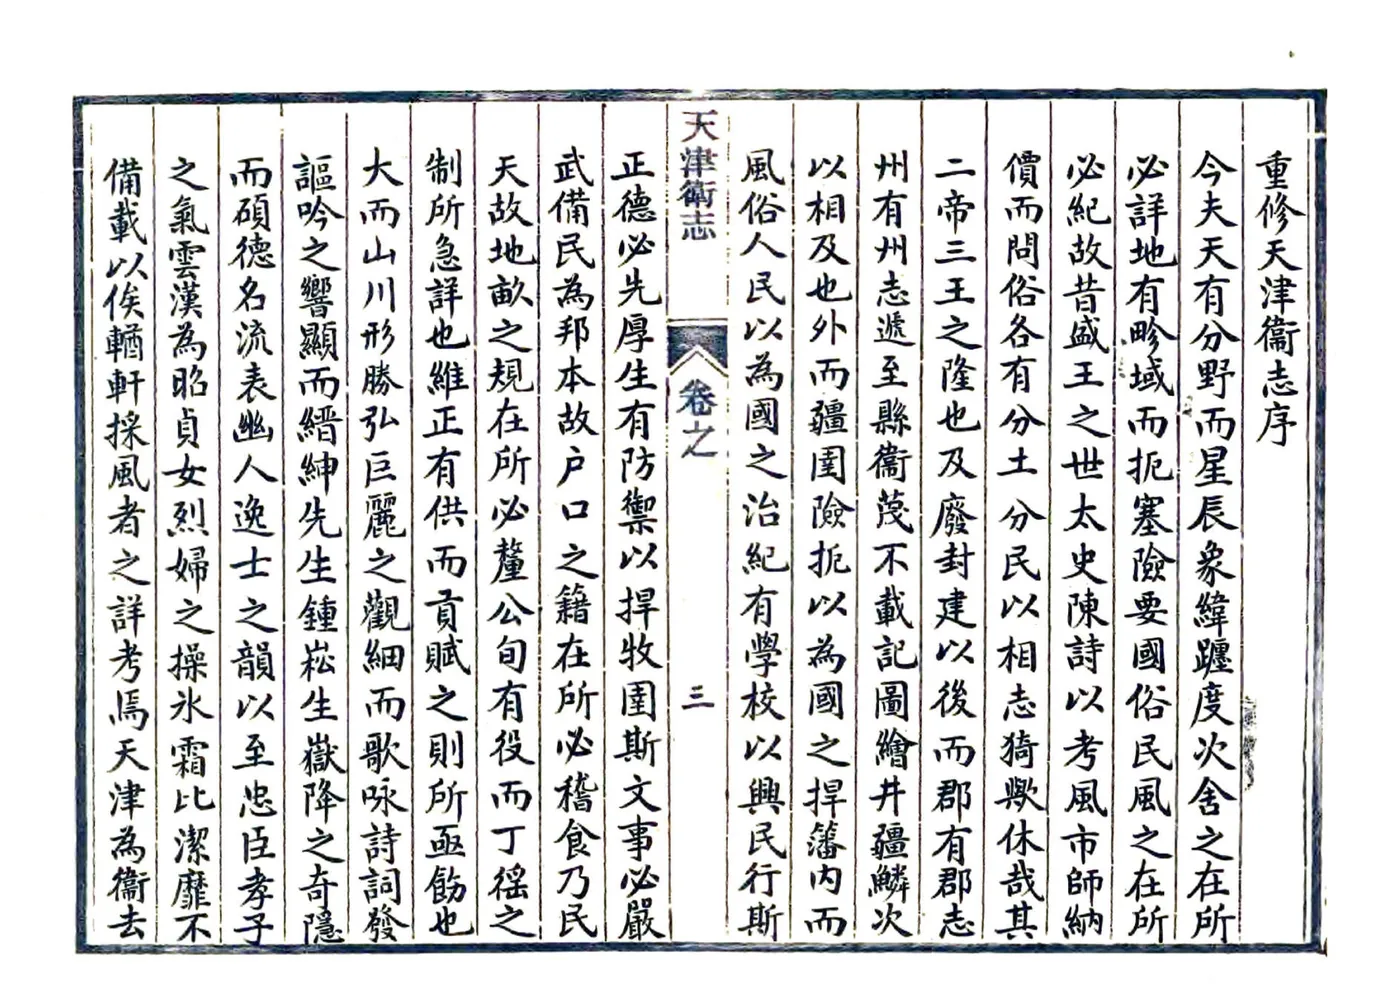 重修天津衞志序
今夫天有分野而星辰象緯躔度次舍之在所
必詳地有畛域而扼塞險要國俗民風之在所
必紀故昔盛王之世太史陳詩以考風市師納
價而問俗各有分土分民以相志猗歟休哉其
二帝三王之隆也及廢封建以後而郡有郡志
州有州志遞至縣衞蔑不載記圖繪井疆鱗次
以相及也外而疆圉險扼以為國之捍藩内而
風俗人民以為國之治紀有學校以興民行斯
天津衛志
卷之
三
正德必先厚生有防禦以捍牧圉斯文事必嚴
武備民為邦本故户口之籍在所必稽食乃民
天故地畝之規在所必釐公旬有役而丁徭之
制所急詳也維正有供而貢賦之則所亟飭也
大而山川形勝弘巨麗之觀細而歌咏詩詞發
謳吟之響顯而縉紳先生鍾崧生嶽降之奇隱
而碩德名流表幽人逸士之韻以至忠臣孝子
之氣雲漢為昭貞女烈婦之操氷霜比潔靡不
備載以俟輶軒採風者之詳考焉天津為衞去